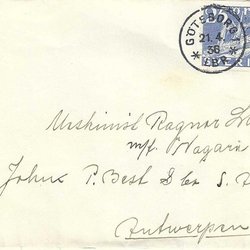 GÖTEBORG 1
21.4.
38
* LBR *
Maskinist Ragnar
m/t Wagaria
Johns P. Best & Co S. A.
Antwerpen